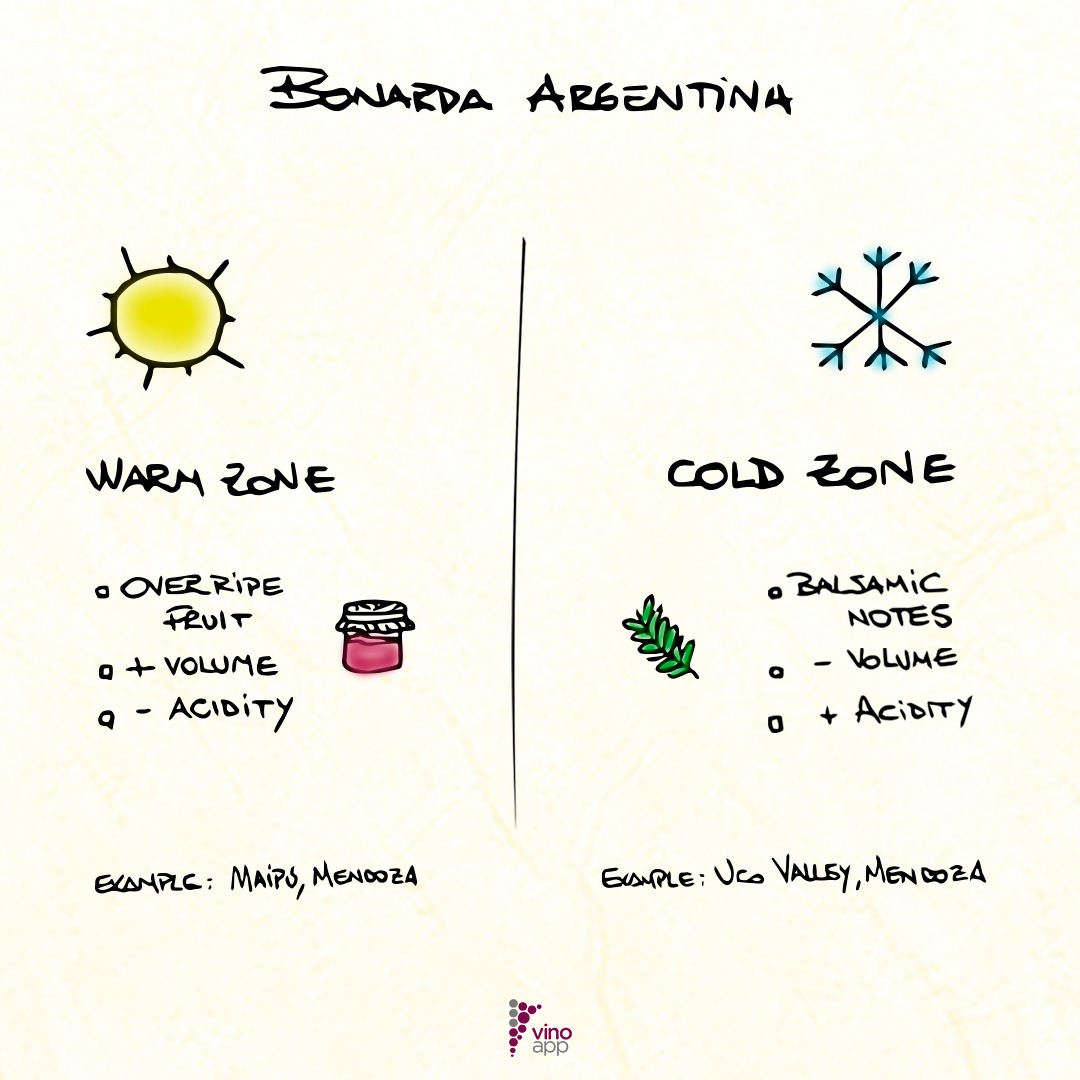 BONARDA ARGENTINA
WARM ZONE
▫ OVERRIPE
FRUIT
▫ + VOLUME
▫ - ACIDITY
EXAMPLE: MAIPÚ, MENDOZA
COLD ZONE
▫ BALSAMIC
NOTES
▫ - VOLUME
▫ + ACIDITY
EXAMPLE: UCO VALLEY, MENDOZA
vino
app